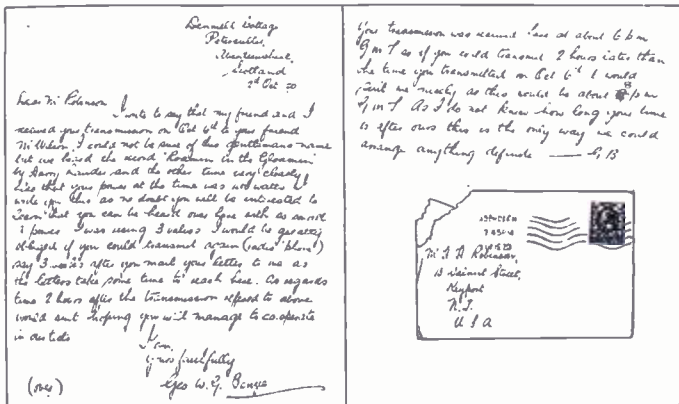 Bennett Cottage
Peterculter,
Aberdeenshire,
Scotland
Dear Mr Robinson
I write to say that my friend and I
received your transmission on Oct 6th to your friend
Mr Wilson. I could not be sure of this gentlemans name
but we heard the record 'Roamin in the Gloamin'
by Harry Lauder and the other tune very clearly
also that your power at the time was 100 watts. I
write you this as no doubt you will be interested to
learn that you can be heard over here with so small
a power. I was using 3 valves. I would be greatly
obliged if you could transmit again (
say 3 weeks after you mail your letter to me as
the letters take some time to reach here. As regards
time 2 hours after the transmission referred to above
would suit. hoping you will manage to co-operate
in our tests
I am,
Yours faithfully
Geo W. G.
(over)
Your transmission was received here at about 6 am
G M T so if you could transmit 2 hours later than
the time you transmitted on Oct 6th it would
suit me nicely, as this would be about 8
G M T. As I do not know how long your time
is after ours this is the only way we could
arrange anything definite — G B
ABERDEEN
Mr Robinson,
Walnut Street,
Keyport
N. J.
U S A